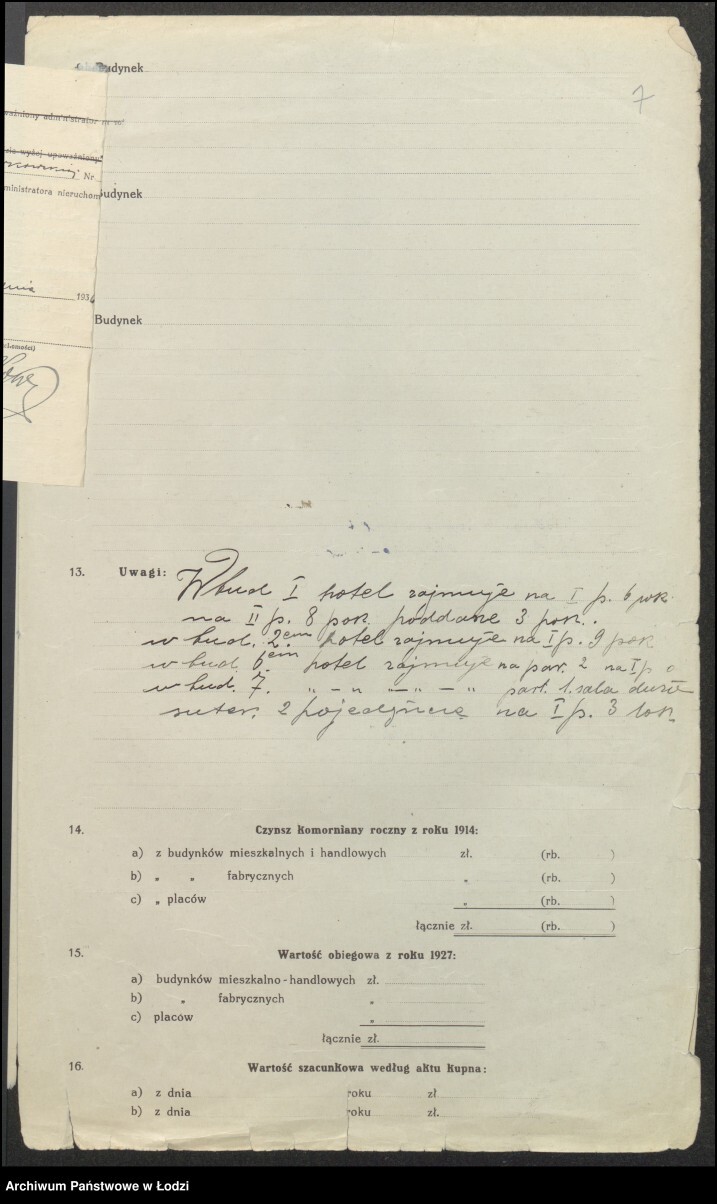 Budynek
7
ważniony adm'n'strator nr.
wyżej upoważniony
Nr.
ministratora nieruchom
Budynek
193
Budynek
13. Uwagi: W bud I hotel zajmuje na I p. 6 pok.
na II p. 8 pok. poddane 3 pok.
w bud. 2em hotel zajmuje na I p. 9 pok
w bud. 6em hotel zajmuje na par. 2 na I p
w bud. 7. „ – „ – „ – „ part. 1. sala duże
suter. 2 pojedyńcze na I p. 3 lok.
14. Czynsz komorniany roczny z roku 1914:
a) z budynków mieszkalnych i handlowych zł. (rb. )
b) „ „ fabrycznych „ (rb. )
c) „ placów „ (rb. )
łącznie zł. (rb. )
15. Wartość obiegowa z roku 1927:
a) budynków mieszkalno-handlowych zł.
b) „ fabrycznych „
c) placów „
łącznie zł.
16. Wartość szacunkowa według aktu kupna:
a) z dnia roku zł
b) z dnia roku zł.
Archiwum Państwowe w Łodzi